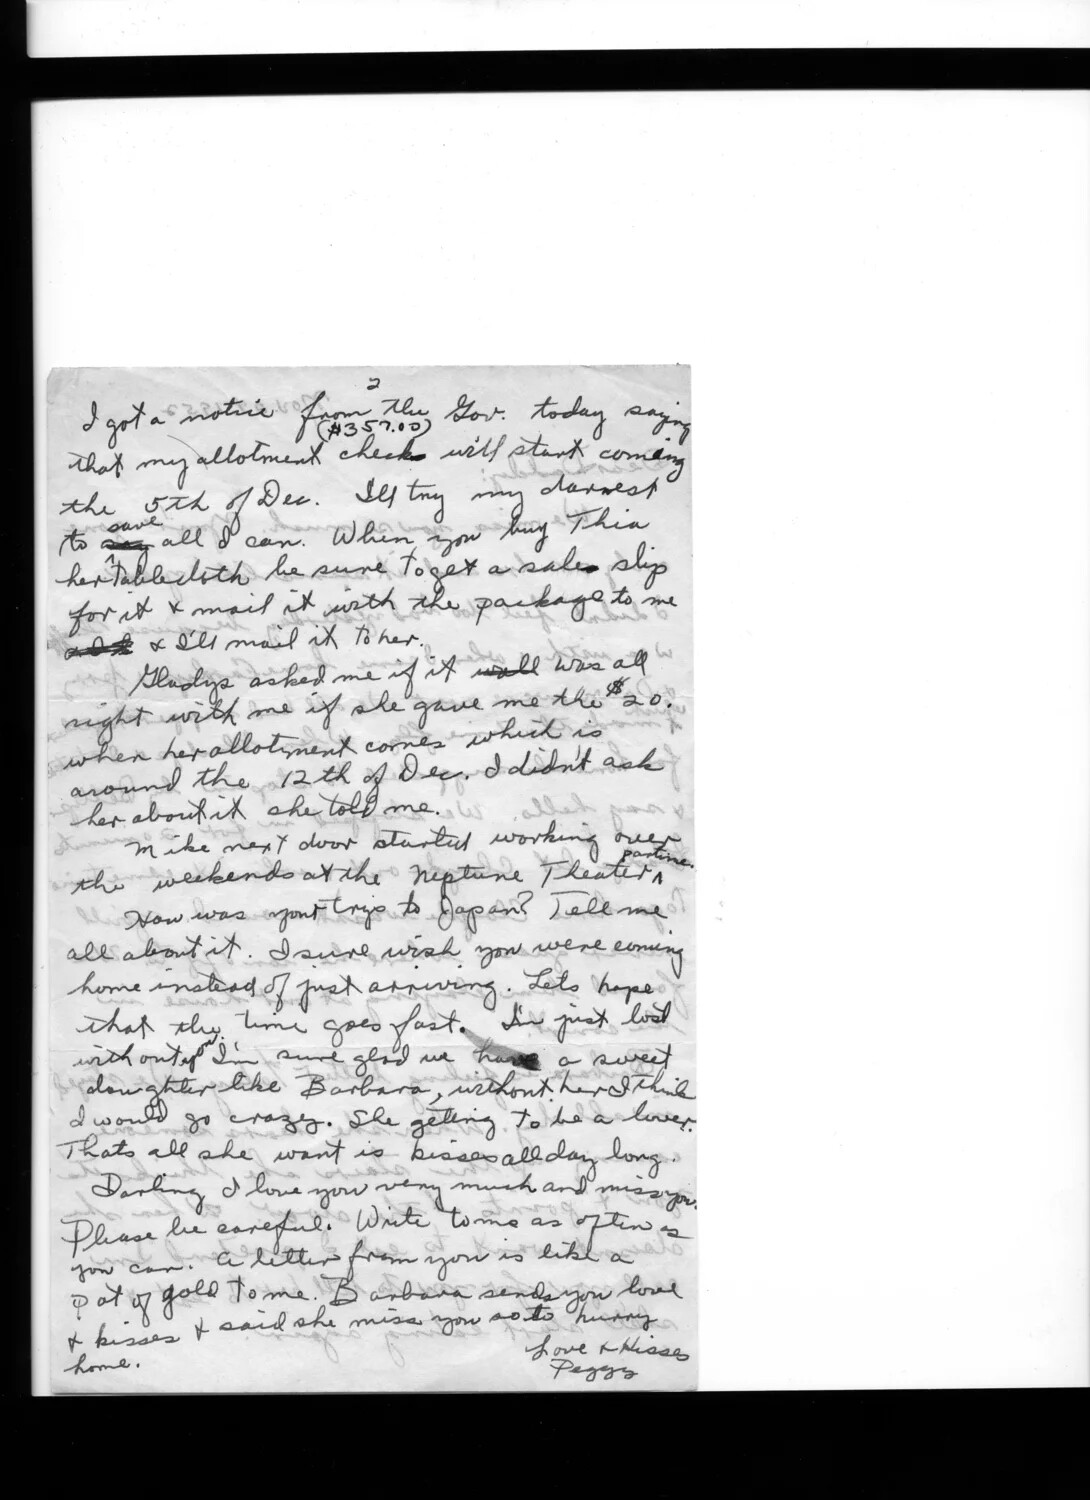 2
I got a notice from the Gov. today saying
($357.00)
that my allotment check will start coming
the 5th of Dec. I'll try my darnest
to save all I can. When you buy Thia
her tablecloth be sure to get a sale slip
for it & mail it with the package to me
& I'll mail it to her.
Gladys asked me if it was all
right with me if she gave me the $20.
when her allotment comes which is
around the 12th of Dec. I didn't ask
her about it she told me.
Mike next door started working over
the weekends at the Neptune Theater partime.
How was your trip to Japan? Tell me
all about it. I sure wish you were coming
home instead of just arriving. Lets hope
that the time goes fast. I'm just lost
without you. I'm sure glad we have a sweet
daughter like Barbara, without her I think
I would go crazy. She geting to be a lover.
Thats all she want is kisses all day long.
Darling I love you very much and miss you.
Please be careful. Write to me as often as
you can. A letter from you is like a
pot of gold to me. Barbara sends you love
& kisses & said she miss you so to hurry
home.
Love & Kisses
Peggy